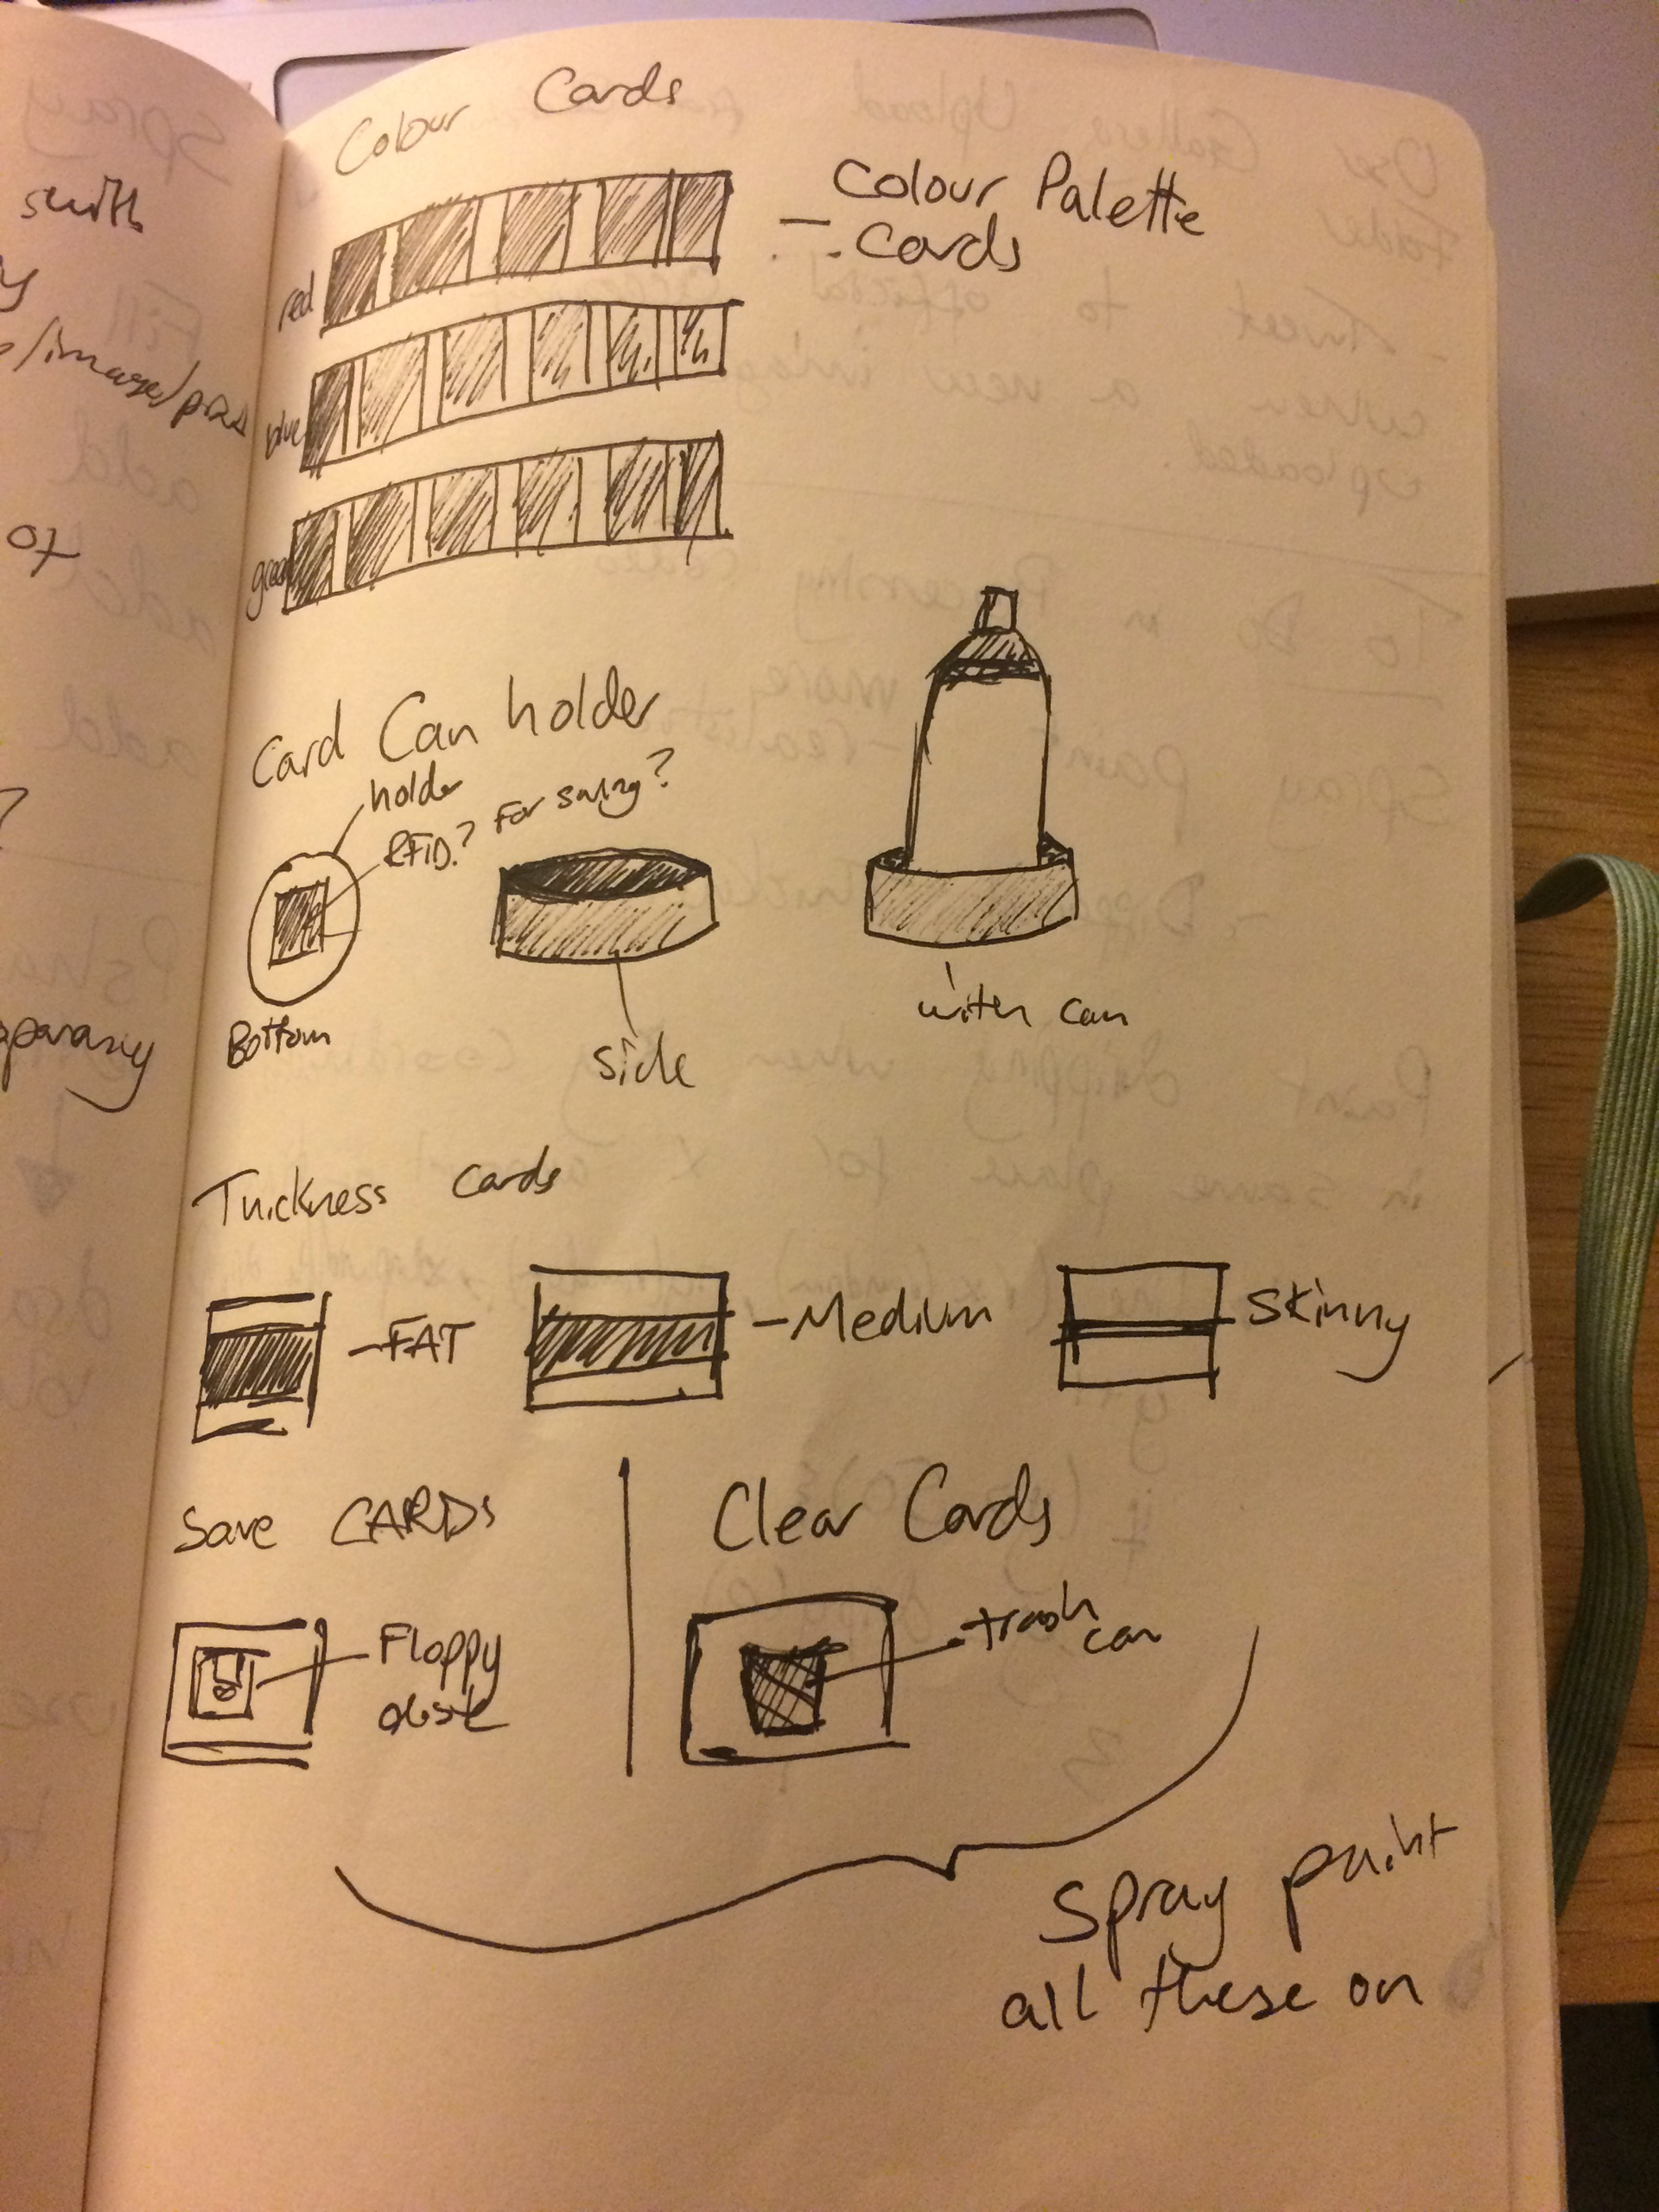 Colour Cards
Colour Palette
Cards
red
blue
green
Card Can holder
holder
RFID? For saving?
Bottom
side
with can
Thickness cards
-FAT
-Medium
Skinny
Save CARDs
Clear Cards
Floppy
disk
trash
can
spray paint
all these on
with
/image/
of